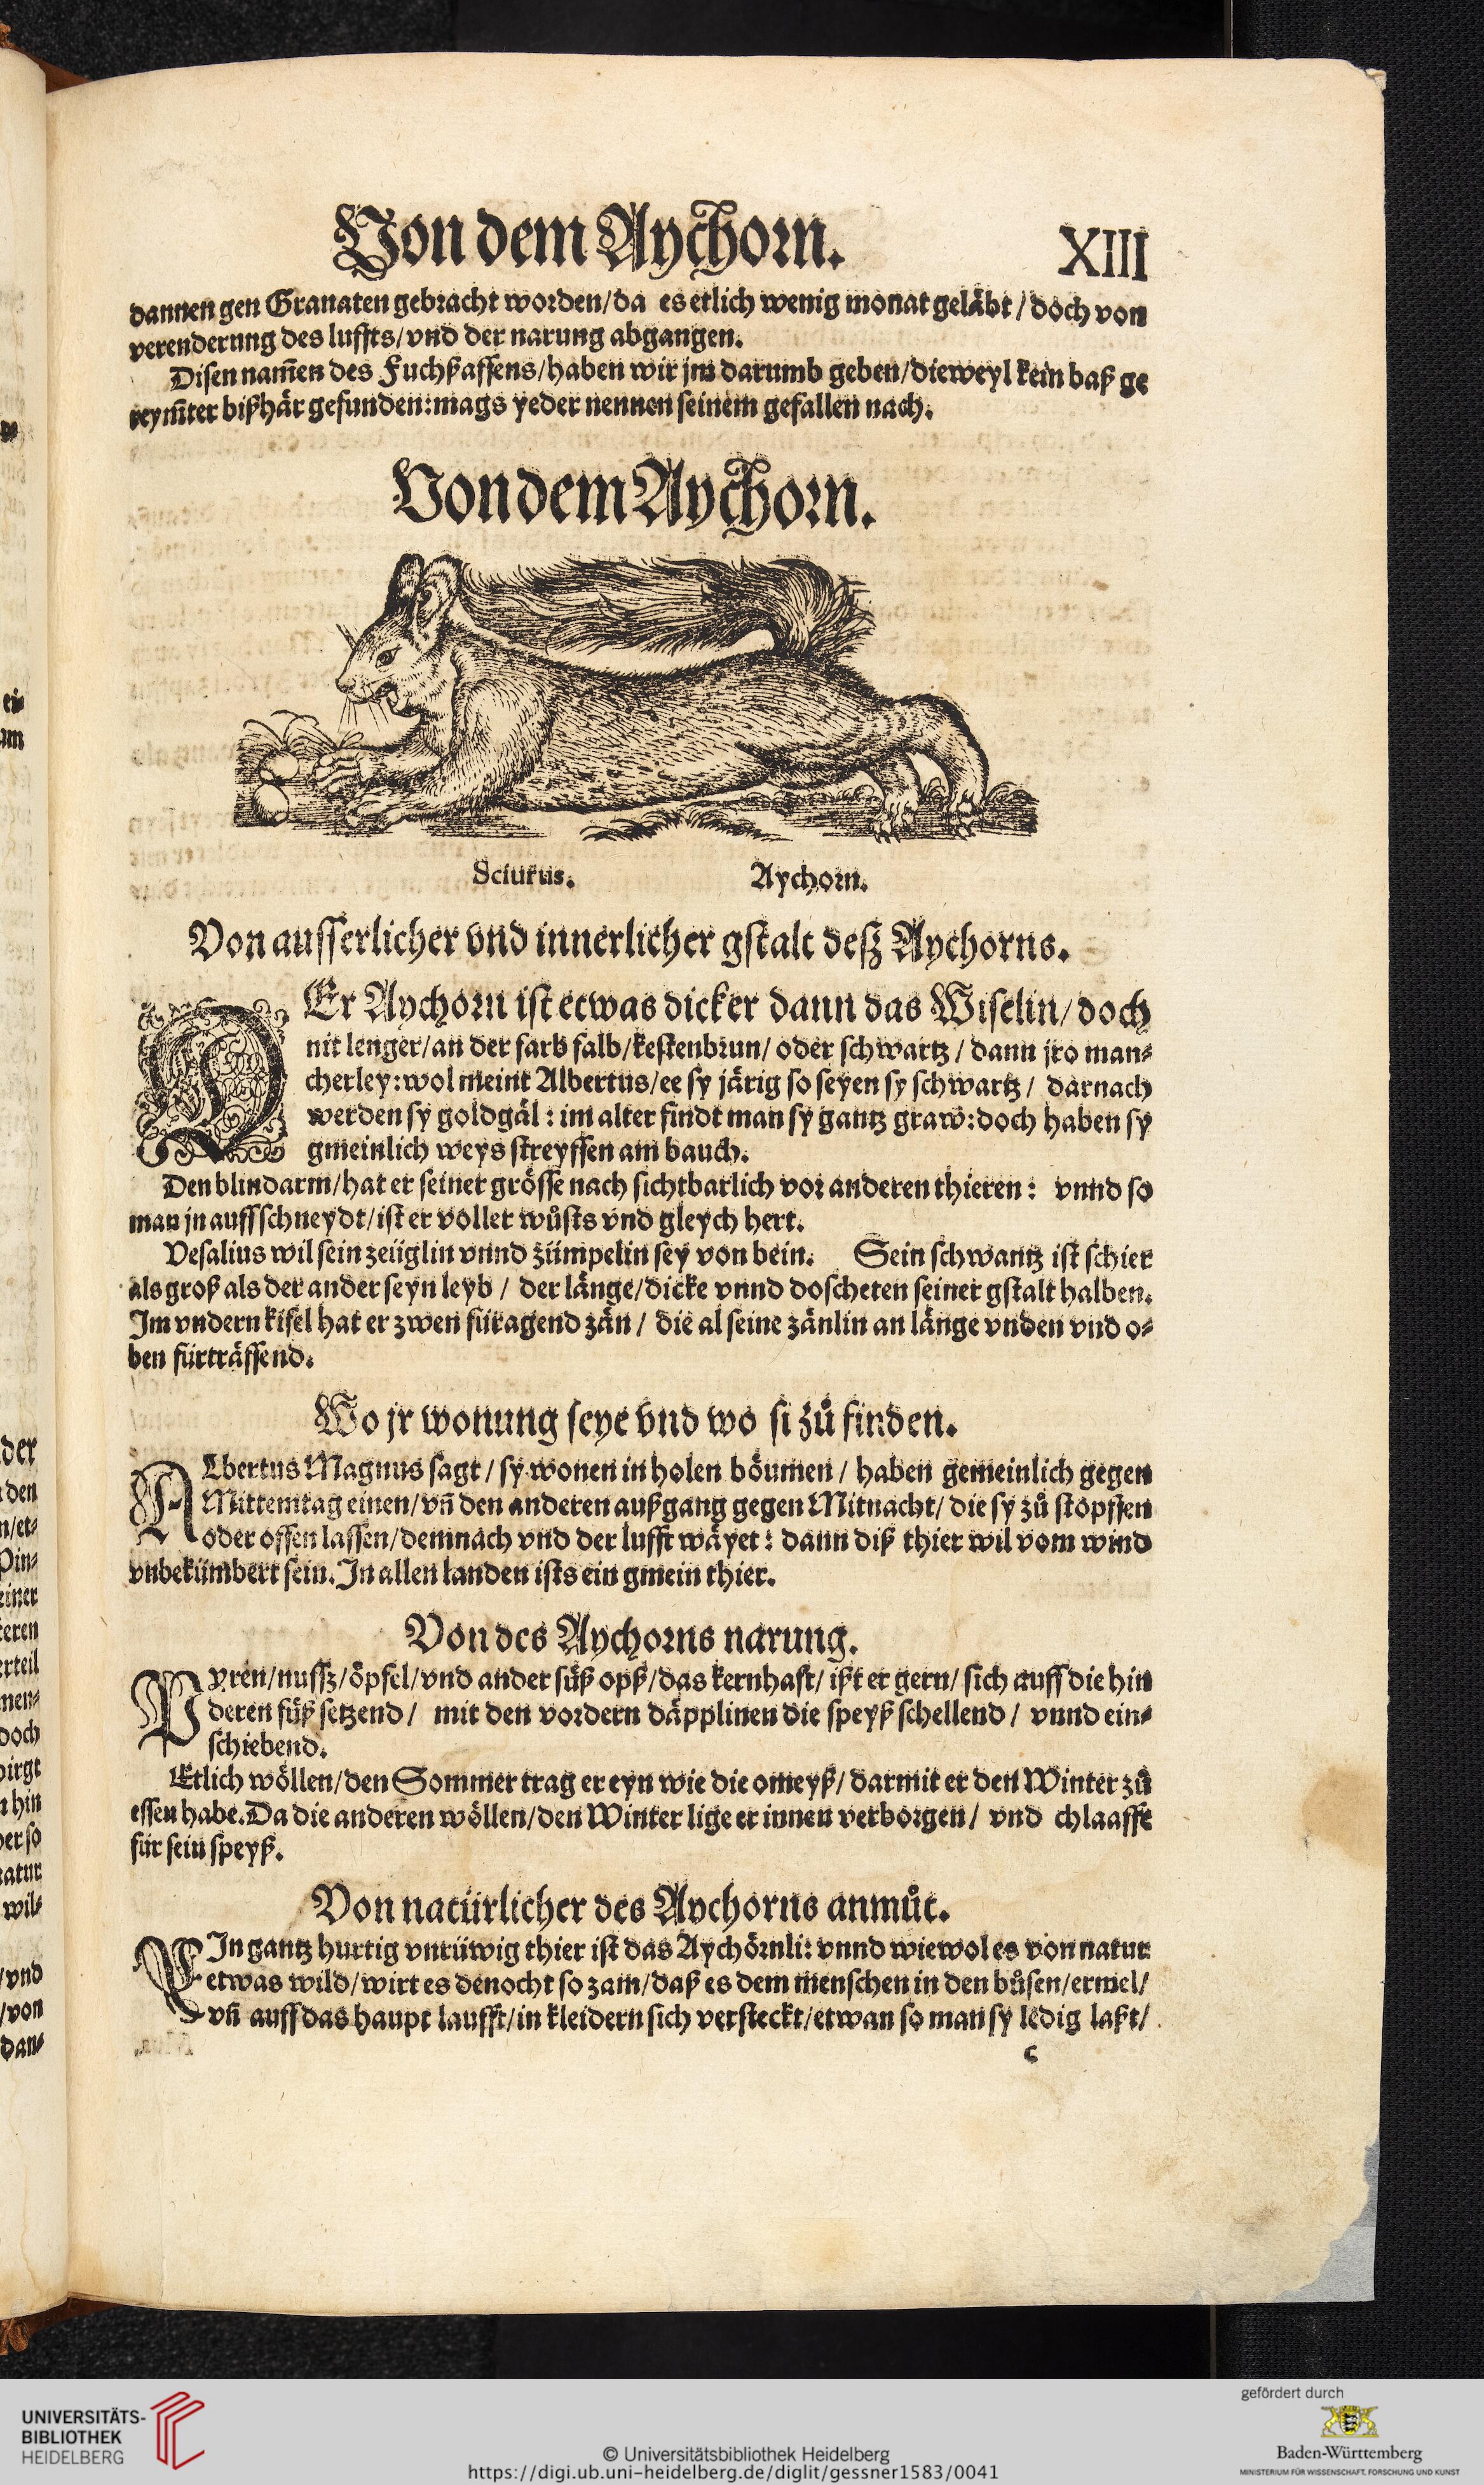 Von dem Aychorn.
XIII
dannen gen Granaten gebracht worden/da es etlich wenig monat geläbt / doch von
verenderung des luffts/vnd der narung abgangen.
Disen nam̄en des Fuchßaffens/haben wir jm darumb geben/dieweyl kein baß ge
reym̄ter bißhär gefunden: mags yeder nennen seinem gefallen nach.
Von dem Aychorn.
Sciurus. Aychorn.
Von ausserlicher vnd innerlicher gstalt desz Aychorns.
DEr Aychorn ist etwas dicker dann das Wiselin/ doch
nit lenger/an der farb falb/kestenbrun/ oder schwartz / dann jro man⸗
cherley: wol meint Albertus/ee sy järig so seyen sy schwartz / darnach
werden sy goldgäl: im alter findt man sy gantz graw: doch haben sy
gmeinlich weys streyffen am bauch.
Den blindarm/hat er seiner grösse nach sichtbarlich vor anderen thieren: vnnd so
man jn auffschneydt/ist er voller wůsts vnd gleych hert.
Vesalius wil sein zeüglin vnnd zümpelin sey von bein. Sein schwantz ist schier
als groß als der ander seyn leyb / der länge/dicke vnnd doscheten seiner gstalt halben.
Im vndern kifel hat er zwen füragend zän / die al seine zänlin an länge vnden vnd o⸗
ben fürträffend.
Wo jr wonung seye vnd wo si zů finden.
ALbertus Magnus sagt / sy wonen in holen böumen / haben gemeinlich gegen
Mittemtag einen/vn̄ den anderen außgang gegen Mitnacht/ die sy zů stopffen
oder offen lassen/demnach vnd der lufft wäyet: dann diß thier wil vom wind
vnbekümbert sein. In allen landen ists ein gmein thier.
Von des Aychorns narung.
PYren/nussz/öpfel/vnd ander süß opß/das kernhaft/ ißt er gern/ sich auff die hin
deren füß setzend / mit den vordern däpplinen die speyß schellend / vnnd ein⸗
schiebend.
Etlich wöllen/den Sommer trag er eyn wie die omeyß/ darmit er den Winter zů
essen habe. Da die anderen wöllen/den Winter lige er innen verborgen/ vnd chlaafft
für sein speyß.
Von natürlicher des Aychorns anmůt.
EIn gantz hurtig vnrüwig thier ist das Aychörnli: vnnd wiewol es von natur
etwas wild/wirt es dēnocht so zam/daß es dem menschen in den bůsen/ermel/
vn̄ auff das haupt laufft/in kleidern sich versteckt/etwan so man sy ledig laßt/
c
der
den
n/et⸗
Pin⸗
einer
teren
rteil
nen⸗
doch
birgt
hin
er so
atur
wil⸗
/vnd
/von
dan⸗
UNIVERSITÄTS-
BIBLIOTHEK
HEIDELBERG
© Universitätsbibliothek Heidelberg
https://digi.ub.uni-heidelberg.de/diglit/gessner1583/0041
gefördert durch
Baden-Württemberg
MINISTERIUM FÜR WISSENSCHAFT, FORSCHUNG UND KUNST